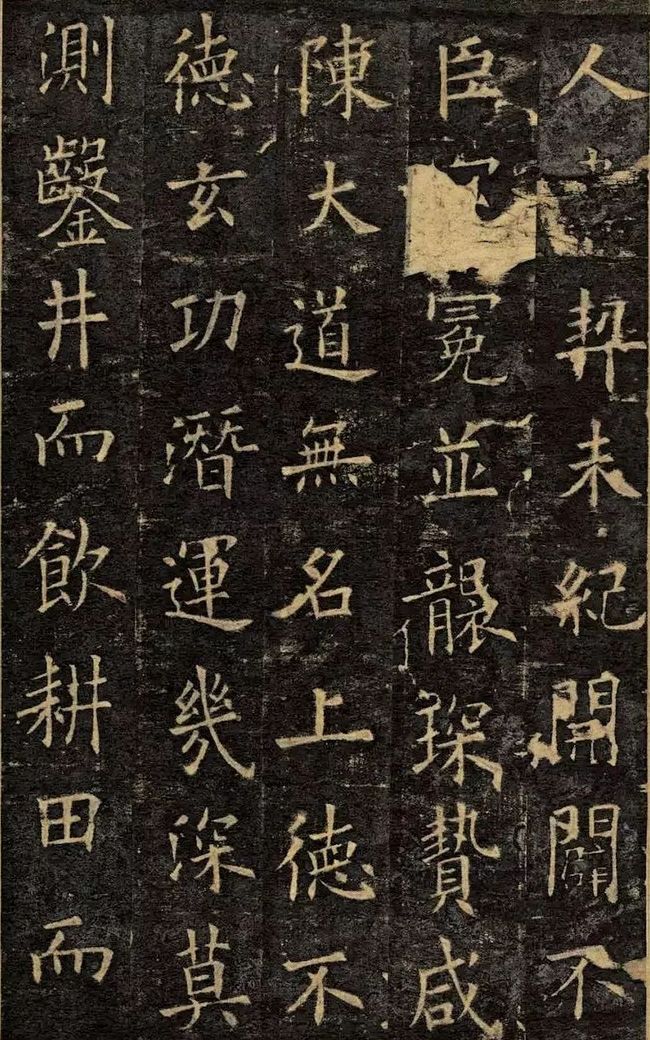 人契未紀開闢不
臣冕並襲琛贄咸
陳大道無名上德不
德玄功潛運幾深莫
測鑿井而飲耕田而